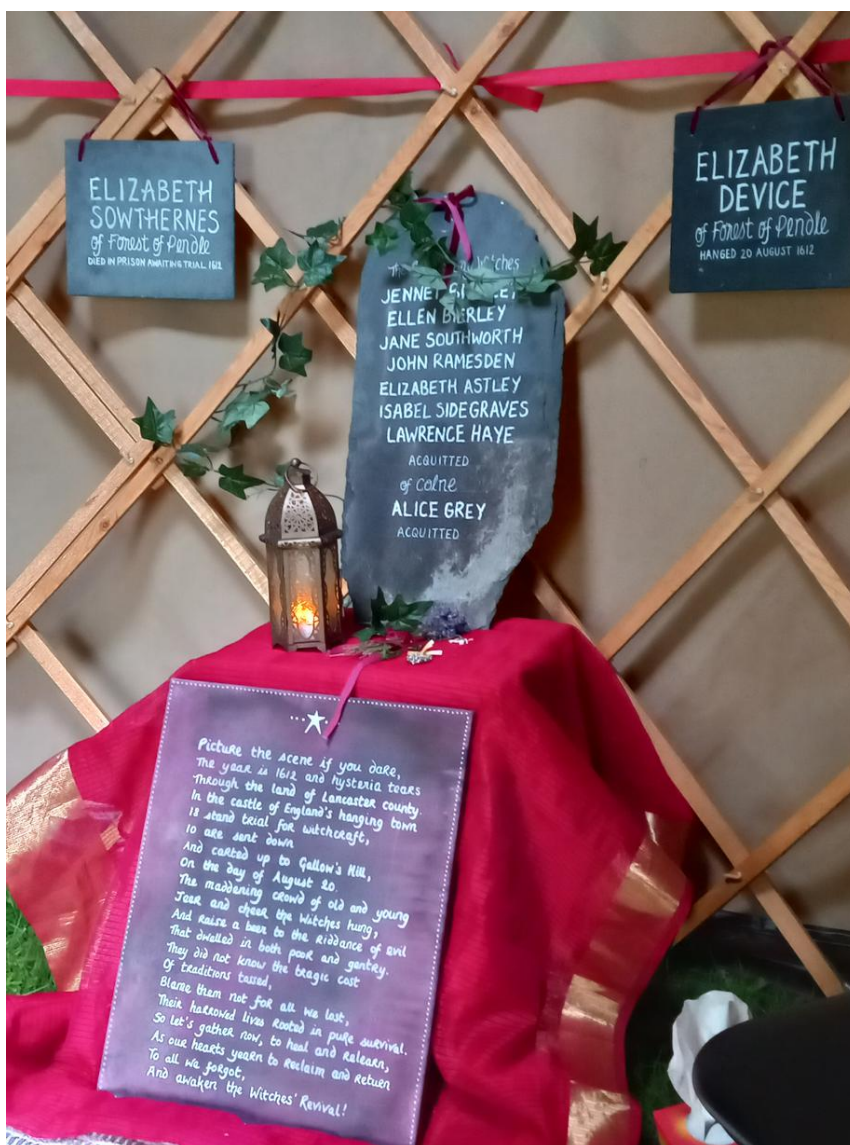 ELIZABETH
SOWTHERNES
of Forest of Pendle
DIED IN PRISON AWAITING TRIAL 1612
ELIZABETH
DEVICE
of Forest of Pendle
HANGED 20 AUGUST 1612
JENNET
ELLEN BIERLEY
JANE SOUTHWORTH
JOHN RAMESDEN
ELIZABETH ASTLEY
ISABEL SIDEGRAVES
LAWRENCE HAYE
ACQUITTED
of Colne
ALICE GREY
ACQUITTED
Picture the scene if you dare,
The year is 1612 and hysteria tears
Through the land of Lancaster county.
In the castle of England's hanging town
18 stand trial for witchcraft,
10 are sent down
And carted up to Gallow's Hill,
On the day of August 20.
The maddening crowd of old and young
Jeer and cheer the Witches hung,
And raise a beer to the riddance of evil
That dwelled in both poor and gentry.
They did not know the tragic cost
Of traditions
Blame them not for all we lost,
Their harrowed lives rooted in pure survival.
So let's gather now, to heal and relearn,
As our hearts yearn to reclaim and return
To all we forgot,
And awaken the Witches' Revival!